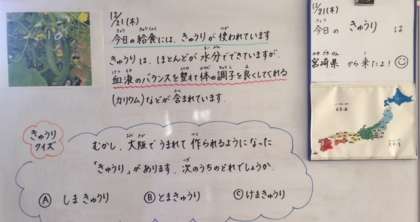 12/21(木)
今日の給食には、きゅうりが使われています
きゅうりは、ほとんどが水分でできていますが、
血液のバランスを整えて体の調子を良くしてくれる
(カリウム)などが含まれています.
きゅうり
クイズ
むかし、大阪でうまれて作られるようになった
「きゅうり」があります。次のうちのどれでしょうか.
Ⓐ しまきゅうり Ⓑ とまきゅうり Ⓒ けまきゅうり
12/21(木)
今日の きゅうり は
宮崎県 から来たよ!